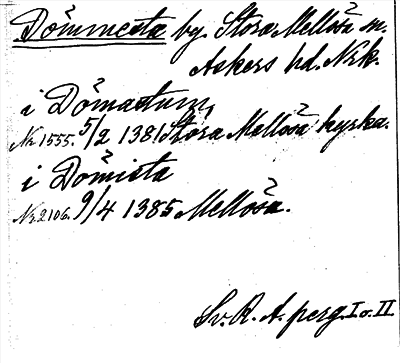 Dömmesta by. Stora Mellösa sn.
Askers hd. Nrk.
i Dömastum,
Nr. 1555. 5/2 1381 Stora Mellösa kyrka.
i Dömista
Nr. 2106. 9/4 1385 Mellösa.
Sv. R. A. perg. I o. II